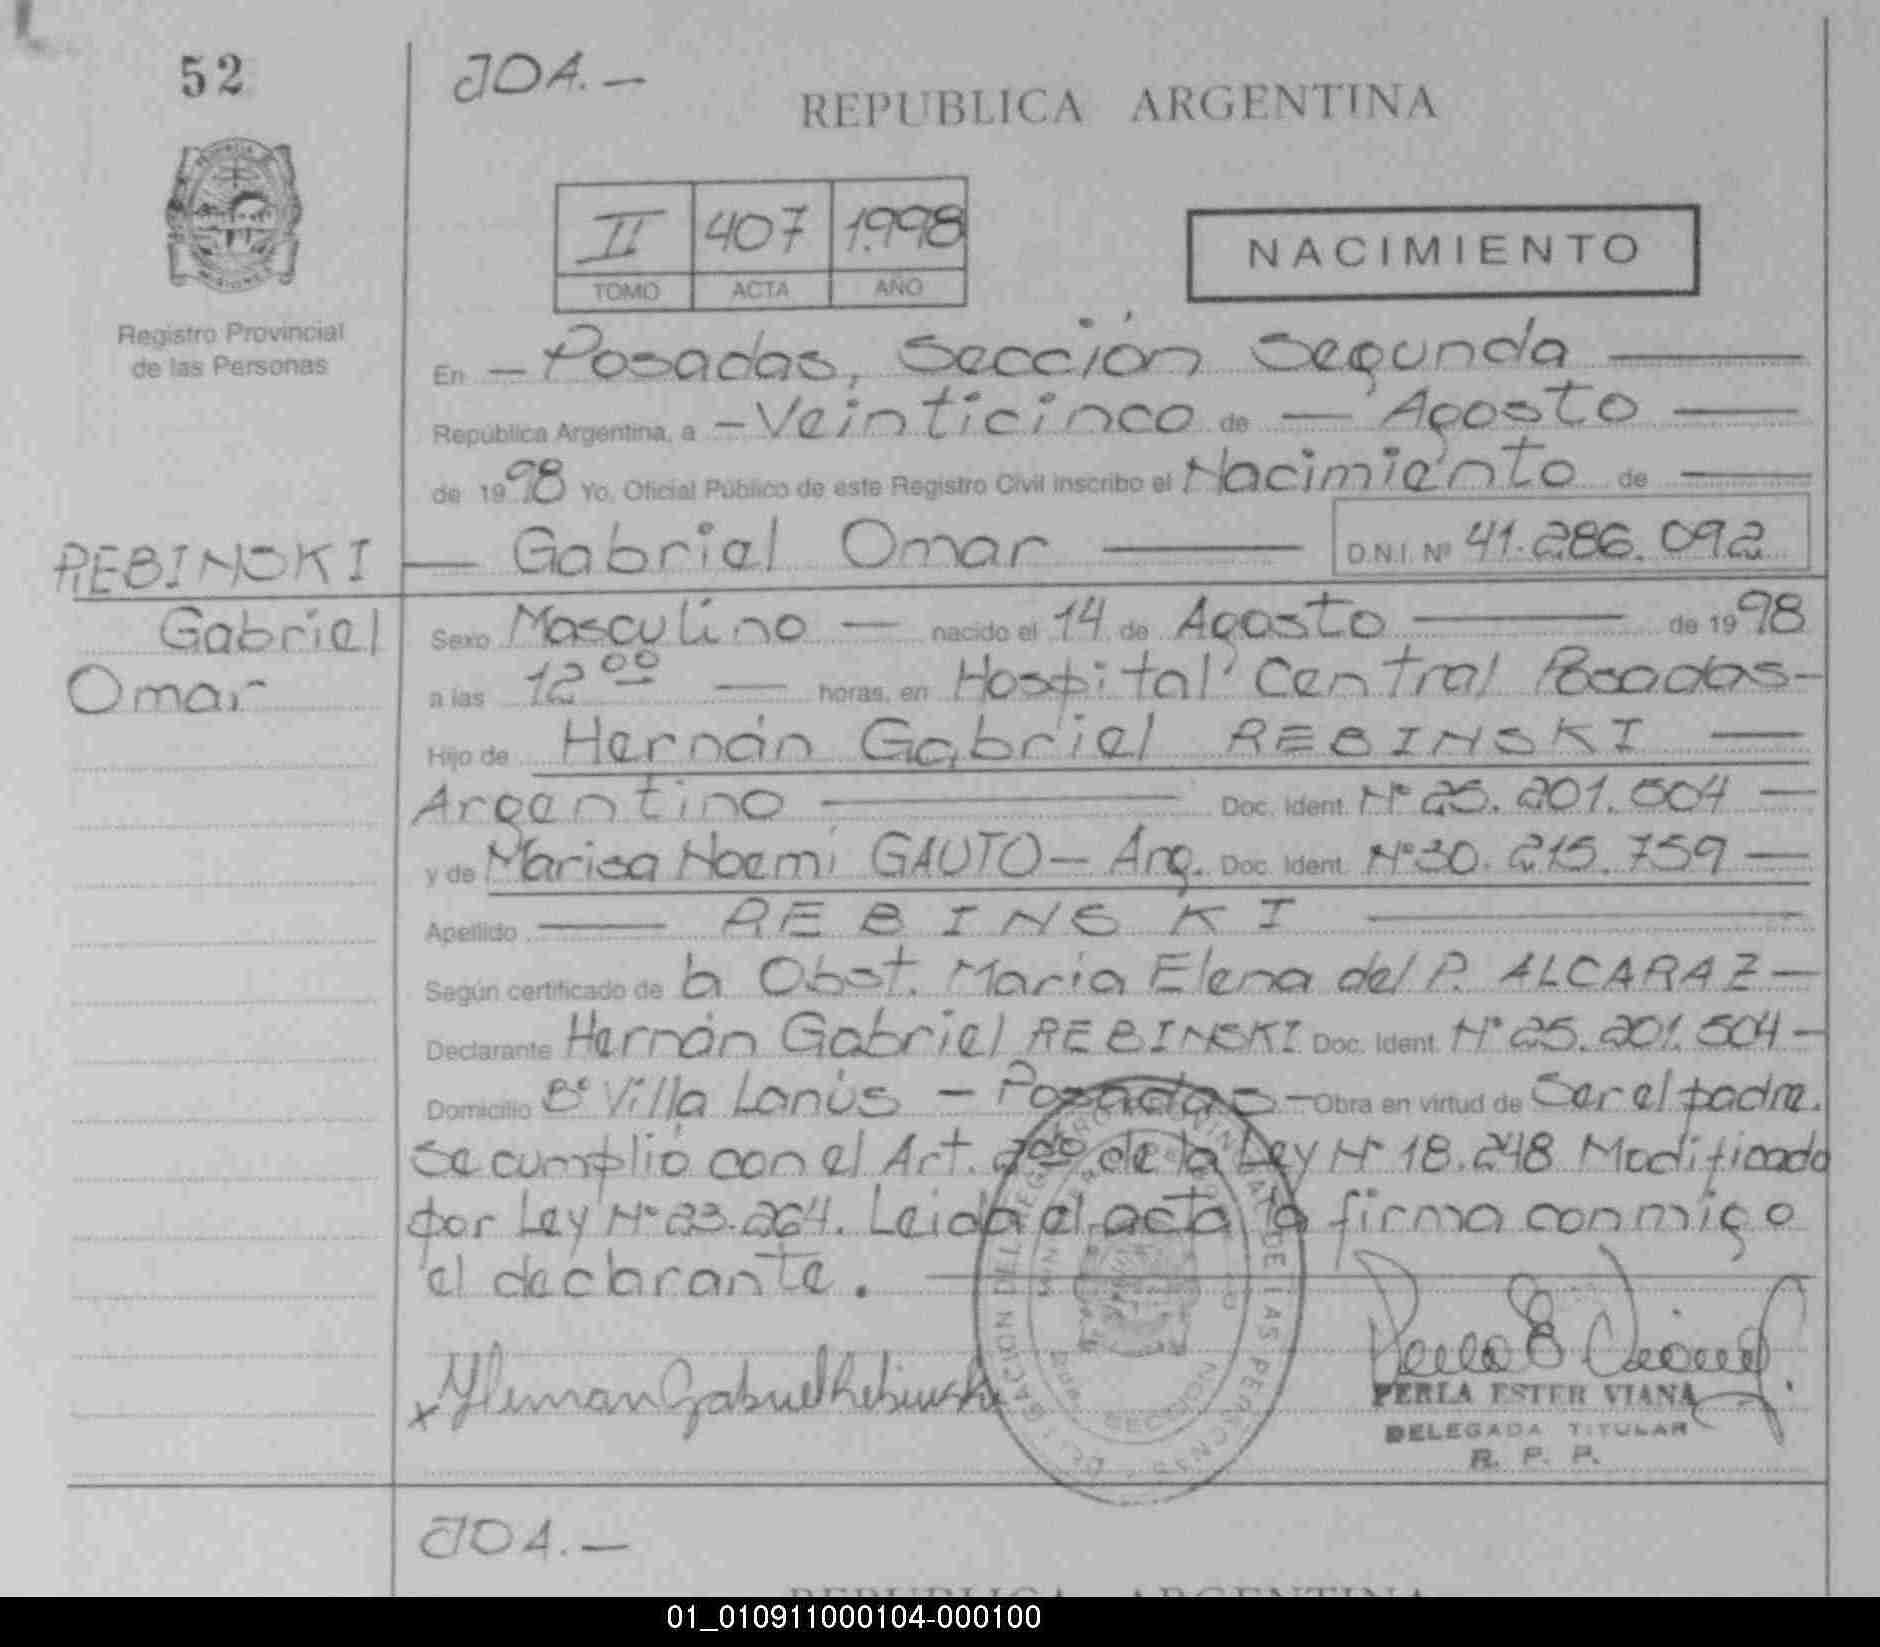 52
JOA.—
REPUBLICA ARGENTINA
II 407 1998
TOMO ACTA AÑO
NACIMIENTO
Registro Provincial
de las Personas
En — Posadas, Sección Segunda —
República Argentina, a — Veinticinco de — Agosto —
de 1998 Yo, Oficial Público de este Registro Civil inscribo el Nacimiento de —
REBINSKI — Gabriel Omar — D.N.I. Nº 41.286.092
Gabriel
Omar
Sexo Masculino — nacido el 14 de Agosto — de 1998
a las 12 00 — horas, en Hospital Central Posadas—
Hijo de Hernán Gabriel REBINSKI —
Argentino — Doc. Ident. Nº 25.201.504 —
y de Marisa Noemi GAUTO — Arg. Doc. Ident. Nº 30.215.759 —
Apellido — REBINSKI —
Según certificado de la Obst. Maria Elena del P. ALCARAZ —
Declarante Hernán Gabriel REBINSKI Doc. Ident. Nº 25.201.504 —
Domicilio Bº Villa Lanús — Posadas — Obra en virtud de Ser el padre.
Se cumplió con el Art. 2do de la Ley Nº 18.248 Modificado
por Ley Nº 23.264. Leida el acta la firma conmigo
el declarante. —
x Hernan Gabriel Rebinski
PERLA ESTER VIANA
DELEGADA TITULAR
R. P. P.
JOA.—
REPUBLICA ARGENTINA
01_010911000104-000100